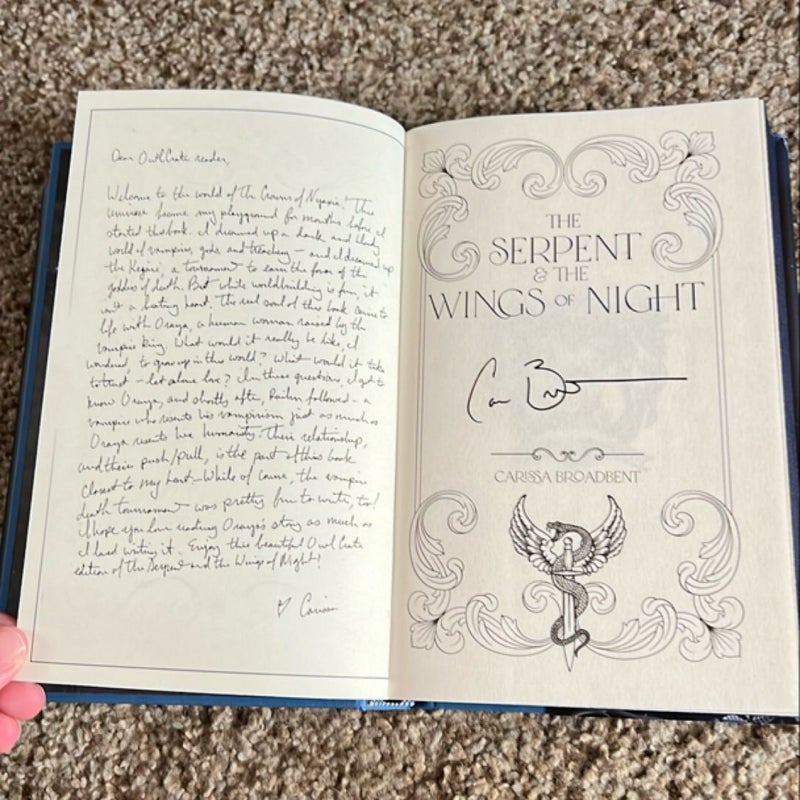 Dear OwlCrate reader,
Welcome to the world of The Crowns of Nyaxia! This
universe became my playground for months before I
started this book. I dreamed up a dark and bloody
world of vampires, gods, and treachery — and I dreamed up
the Kejari, a tournament to earn the favor of the
goddess of death. But while worldbuilding is fun, it
isn't a beating heart. The real soul of this book came to
life with Oraya, a human woman raised by the
vampire king. What would it really be like, I
wondered, to grow up in this world? What would it take
to trust — let alone love? In these questions, I got to
know Oraya, and shortly after, Raihn followed — a
vampire who resents his vampirism just as much as
Oraya resents her humanity. Their relationship,
and their push/pull, is the part of this book
closest to my heart — While of course, the vampire
death tournament was pretty fun to write, too!
I hope you love reading Oraya's story as much as
I loved writing it. Enjoy this beautiful OwlCrate
edition of The Serpent and the Wings of Night!
♡ Carissa
THE
SERPENT
& THE
WINGS OF NIGHT
CARISSA BROADBENT